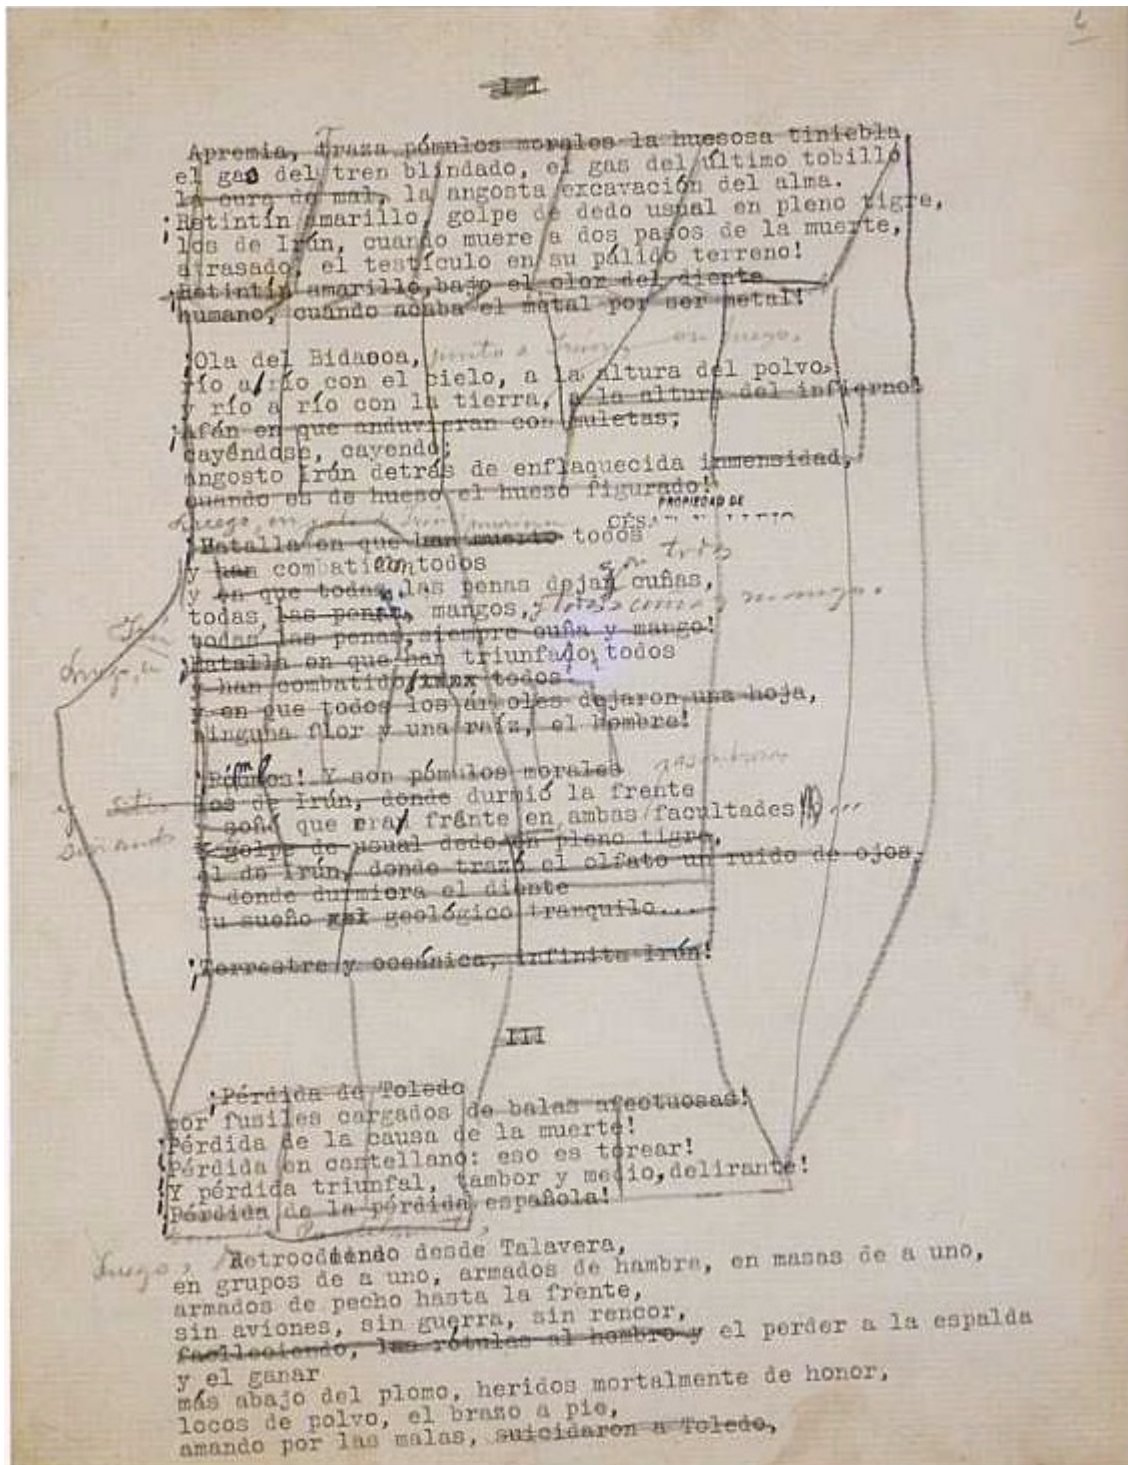 II
Apremia, Traza pómulos morales la huesosa tiniebla,
el gas del tren blindado, el gas del último tobillo
la cura de mal, la angosta excavación del alma.
¡Retintín amarillo, golpe de dedo usual en pleno tigre,
los de Irún, cuando muere a dos pasos de la muerte,
atrasado, el testículo en su pálido terreno!
¡Retintín amarillo, bajo el olor del diente
humano, cuando acaba el metal por ser metal!
¡Ola del Bidasoa, junto a Irún, en luego,
río a río con el cielo, a la altura del polvo,
y río a río con la tierra, a la altura del infierno!
¡Afán en que anduvieran con muletas,
cayéndose, cayendo;
angosto Irún detrás de enflaquecida inmensidad,
cuando es de hueso el hueso figurado!
PROPIEDAD DE
Luego, en
¡Batalla en que han muerto todos
y han combatido todos
tris
y en que todas las penas dejan cuñas,
todas, las penas, mangos, y mangos.
todas las penas, siempre cuña y mango!
¡Batalla en que han triunfado, todos
Luego, en
y han combatido todos!
y en que todos los árboles dejaron una hoja,
ninguna flor y una raíz, el hombre!
¡Pómulos! Y son pómulos morales
los de Irún, donde durmió la frente
y soñó que era frente en ambas facultades...
y golpe de usual dedo en pleno tigre,
el de Irún, donde trazó el olfato un ruido de ojos,
y donde durmiera el diente
su sueño geológico tranquilo....
¡Terrestre y oceánica, infinita Irún!
III
¡Pérdida de Toledo
por fusiles cargados de balas afectuosas!
¡Pérdida de la causa de la muerte!
¡Pérdida en castellano: eso es torear!
¡Y pérdida triunfal, tambor y medio, delirante!
¡Pérdida de la pérdida española!
Luego, Retrocediendo desde Talavera,
en grupos de a uno, armados de hambre, en masas de a uno,
armados de pecho hasta la frente,
sin aviones, sin guerra, sin rencor,
faclleciendo, las rótulas al hombro y el perder a la espalda
y el ganar
más abajo del plomo, heridos mortalmente de honor,
locos de polvo, el brazo a pie,
amando por las malas, suicidaron a Toledo,